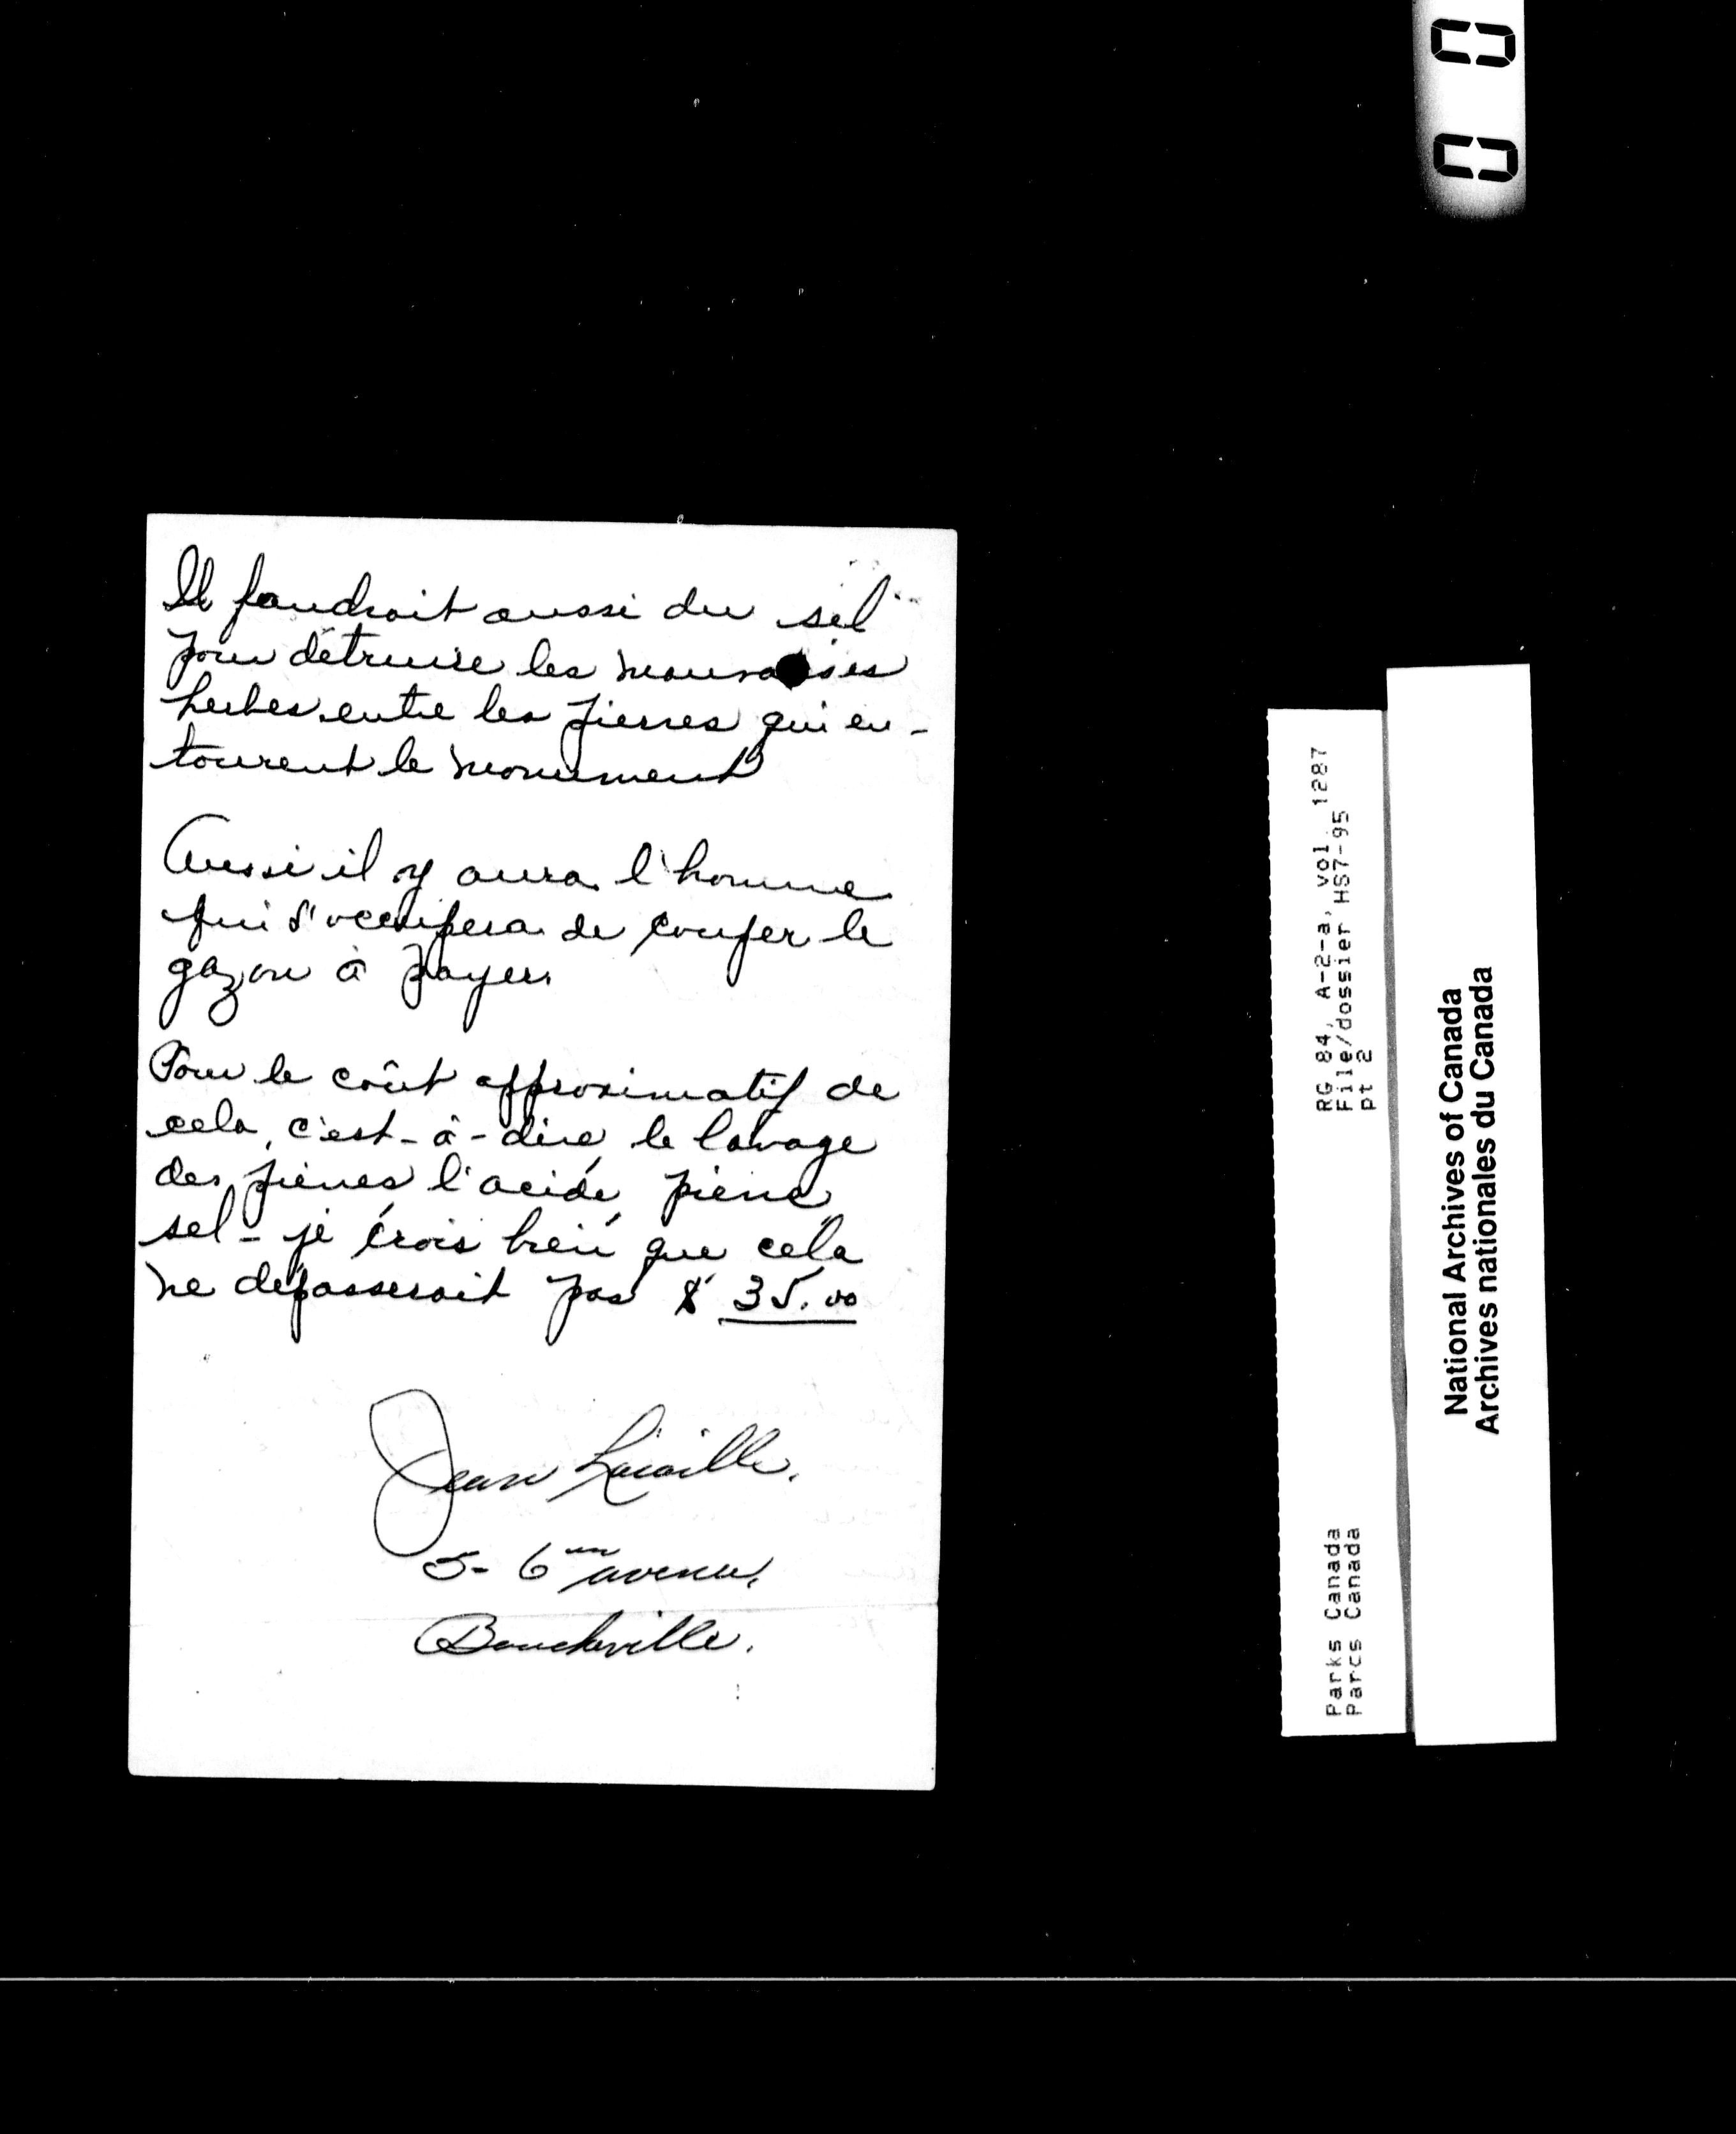 Il faudrait aussi du sel
pour détruire les mauvaises
herbes entre les pierres qui en-
tourent le monument
Aussi il y aura l'homme
qui s'occupera de couper le
gazon à payer.
Pour le coût approximatif de
cela, c'est-à-dire le lavage
des pierres l'acide pierre
sel - je crois bien que cela
ne dépasserait pas $ 35.00
Jean
5- 6ème avenue,
Boucherville.
RG 84, A-2-a, vol. 1287
File/dossier HS7-95
pt 2
Parks Canada
Parcs Canada
National Archives of Canada
Archives nationales du Canada
0 0